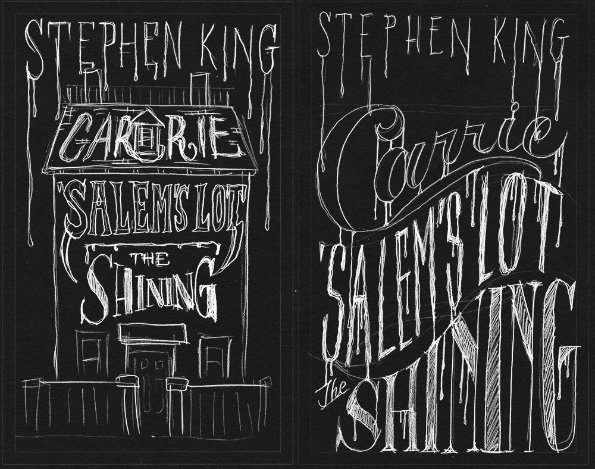 STEPHEN KING
CARRIE
'SALEM'S LOT
THE
SHINING
STEPHEN KING
Carrie
'SALEM'S LOT
The
SHINING